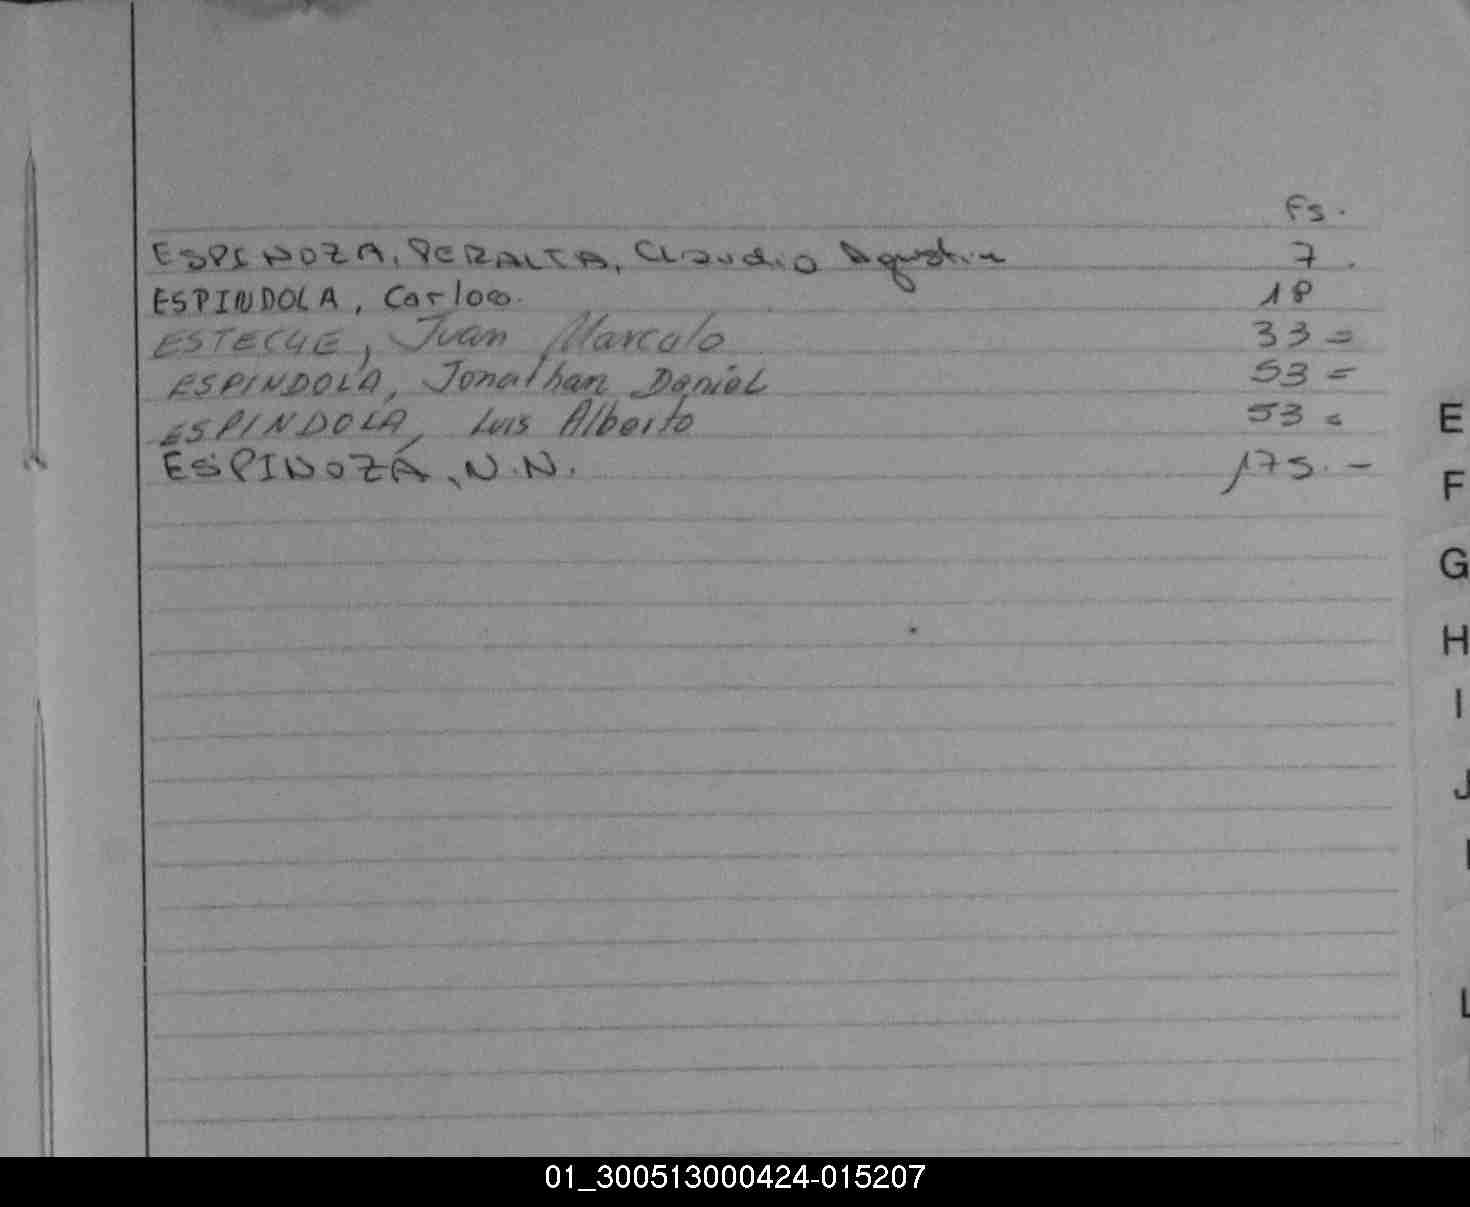 Fs.
ESPINOZA, PERALTA, Claudio Agustin 7.
ESPINDOLA, Carlos. 18
ESTECHE, Juan Marcelo 33=
ESPINDOLA, Jonathan Daniel 53=
ESPINDOLA, Luis Alberto 53=
ESPINOZA, N.N. 175.-
E
F
G
H
I
J
L
01_300513000424-015207